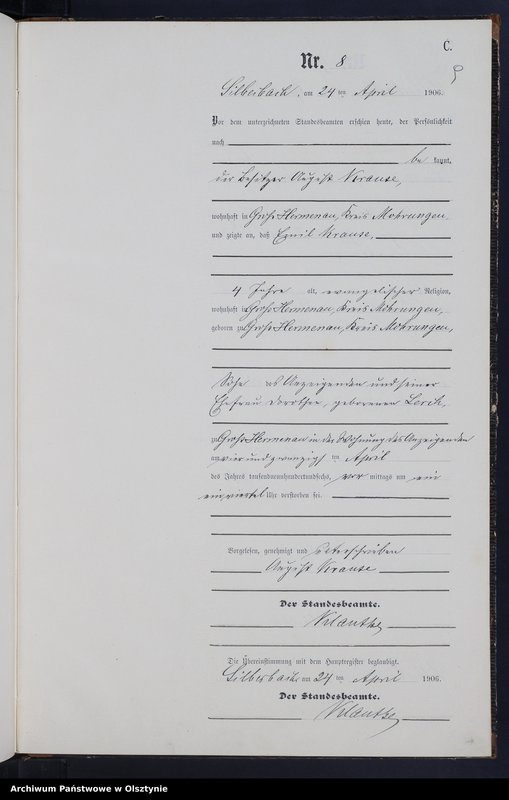 C.
Nr. 8
9
Silberbach, am 24 ten April 1906.
Vor dem unterzeichneten Standesbeamten erschien heute, der Persönlichkeit
nach
be kannt,
der Besitzer August Krause,
wohnhaft in Groß Hermenau, Kreis Mohrungen
und zeigte an, daß Emil Krause,
4 Jahre alt, evangelischer Religion,
wohnhaft in Groß Hermenau, Kreis Mohrungen,
geboren zu Groß Hermenau, Kreis Mohrungen,
Sohn des Anzeigenden und seiner
Ehefrau Dorothea, geborenen
zu Groß Hermenau in der Wohnung des Anzeigenden
am vier und zwanzigsten April
des Jahres tausendneunhundertundsechs, vor mittags um ein
einviertel Uhr verstorben sei.
Vorgelesen, genehmigt und unterschrieben
August Krause
Der Standesbeamte.
Die Übereinstimmung mit dem Hauptregister beglaubigt.
Silberbach am 24 ten April 1906.
Der Standesbeamte.
Archiwum Państwowe w Olsztynie